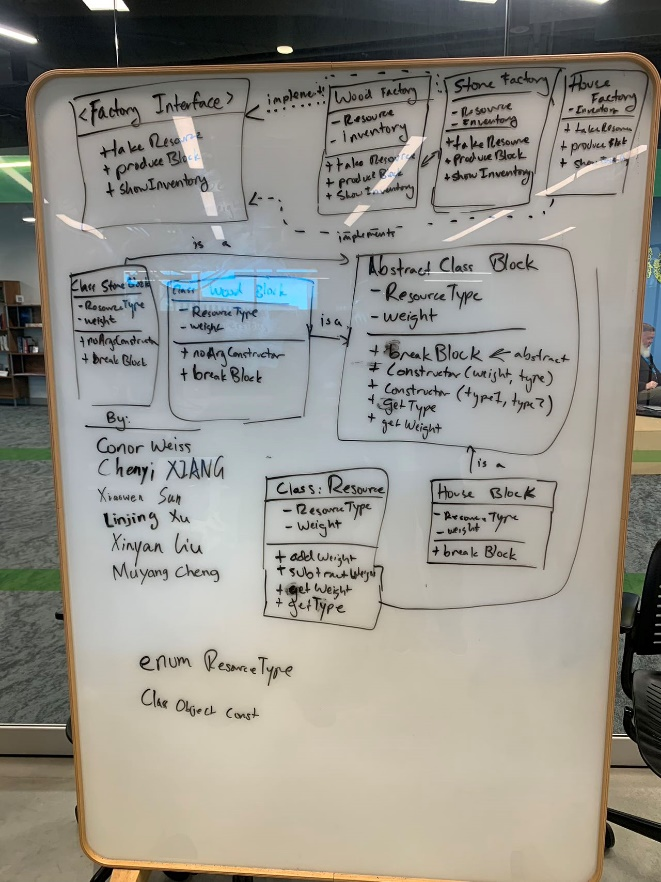 <Factory Interface>
+ take Resource
+ produceBlock
+ showInventory
implements
Wood Factory
- Resource
- inventory
+ take Resource
+ produce Block
+ Show Inventory
Stone Factory
- Resource
- Inventory
+ take Resource
+ Produce Block
+ show Inventory
House Factory
- Inventory
+ take Resource
+ produce Block
+ show
implements
is a
Class Stone Block
- ResourceType
- weight
+ noArgConstructor
+ break Block
Class Wood Block
- ResourceType
- weight
+ noArgConstructor
+ breakBlock
is a
Abstract Class Block
- ResourceType
- weight
+ breakBlock ← abstract
+ Constructor (weight, type)
+ Constructor (type1, type2)
+ getType
+ get Weight
is a
By:
Conor Weiss
Chenyi XIANG
Xiaowen Sun
Linjing Xu
Xinyan Liu
Muyang Cheng
Class: Resource
- ResourceType
- Weight
+ addWeight
+ subtractWeight
+ getWeight
+ getType
House Block
- Resource Type
- weight
+ break Block
enum ResourceType
Class Object Const